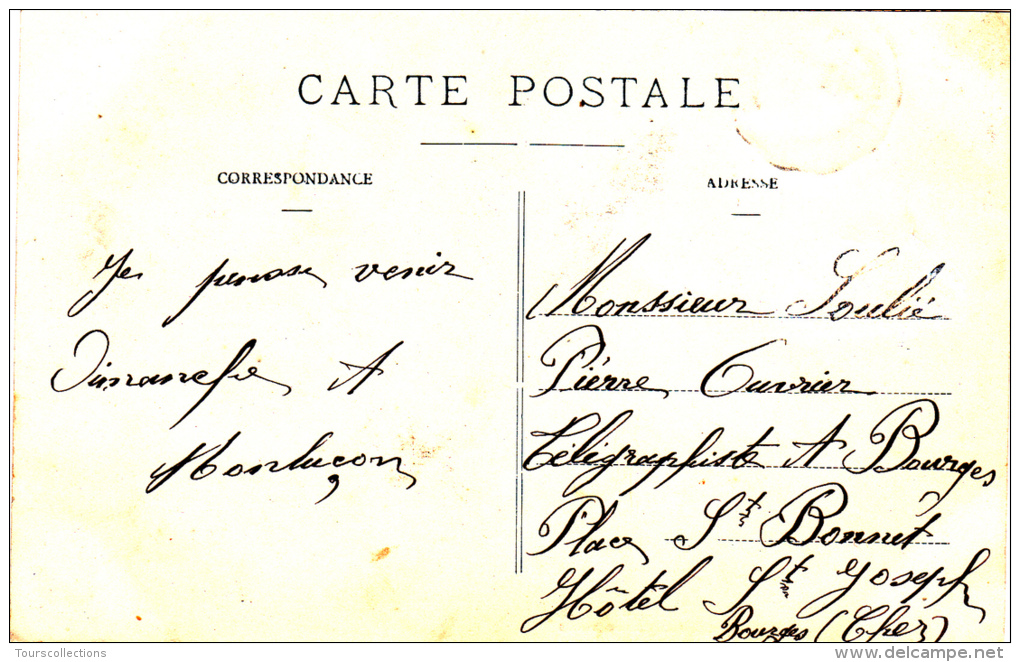 CARTE POSTALE
CORRESPONDANCE
Je pense venir
Dimanche A
Monluçon
ADRESSE
Monssieur Soulié
Pierre Ouvrier
Téligraphiste A Bourges
Place St Bonnet
Hôtel St Joseph
Bourges (Cher)
Tourscollections
www.delcampe.net